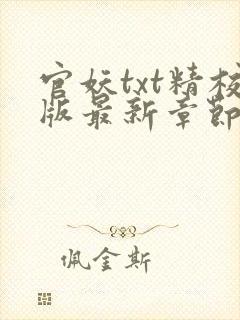 官妖txt精校
版最新章節
佩金斯